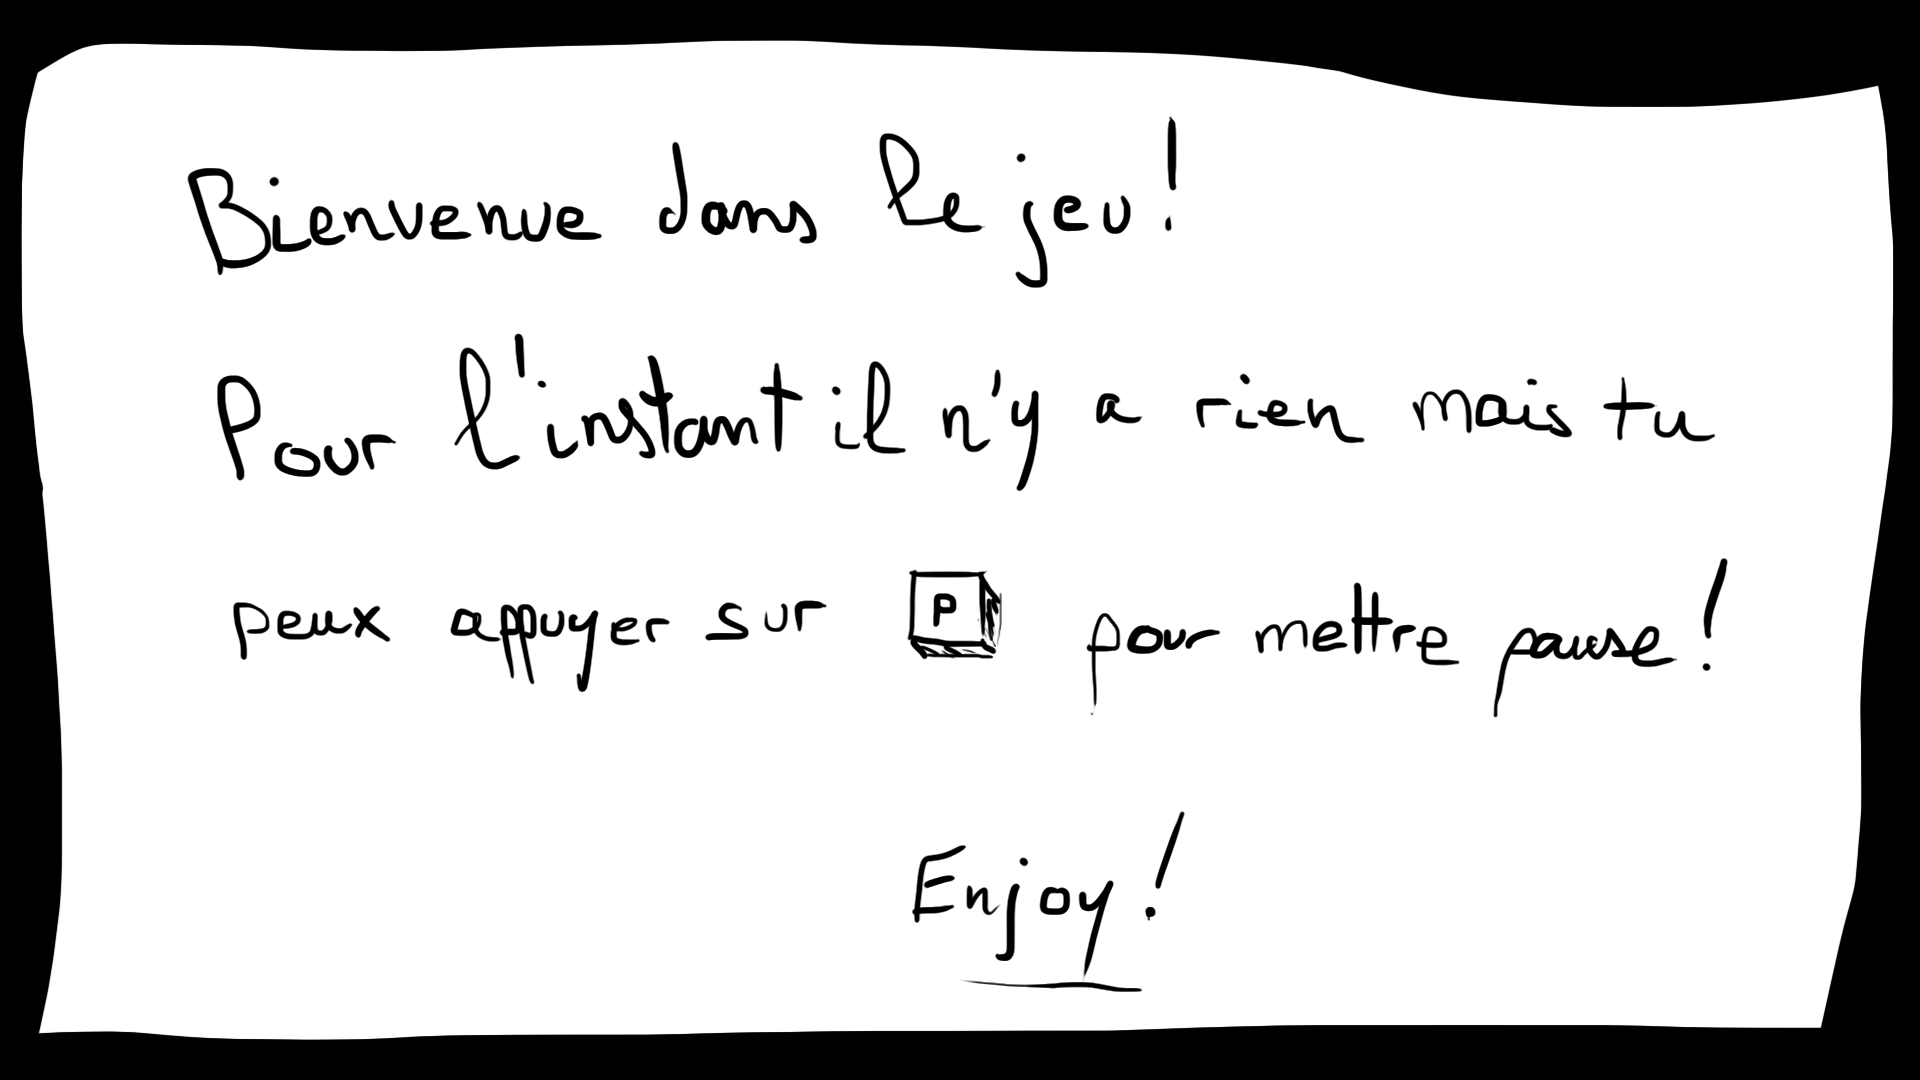 Bienvenue dans le jeu!
Pour l'instant il n'y a rien mais tu
peux appuyer sur P pour mettre pause!
Enjoy!